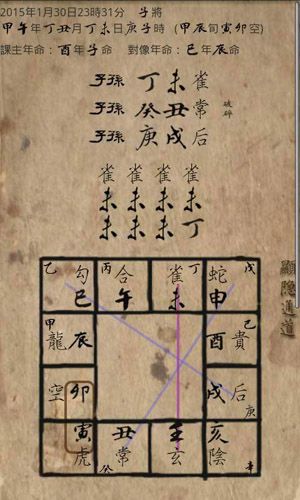 2015年1月30日23時31分 子將
甲午年丁丑月丁未日庚子時 (甲辰旬寅卯空)
課主年命：酉年子命 對像年命：巳年辰命
子孫 丁 未 雀
子孫 癸 丑 常 破碎
子孫 庚 戌 后
雀 雀 雀 雀
未 未 未 未
未 未 未 丁
乙 勾 丙 合 雀 丁 蛇 戊
巳 午 未 申
甲 己
龍 辰 酉 貴
空 卯 戌 后
庚
寅 丑 壬 亥
虎 常 玄 陰
癸 辛
顯隱通道